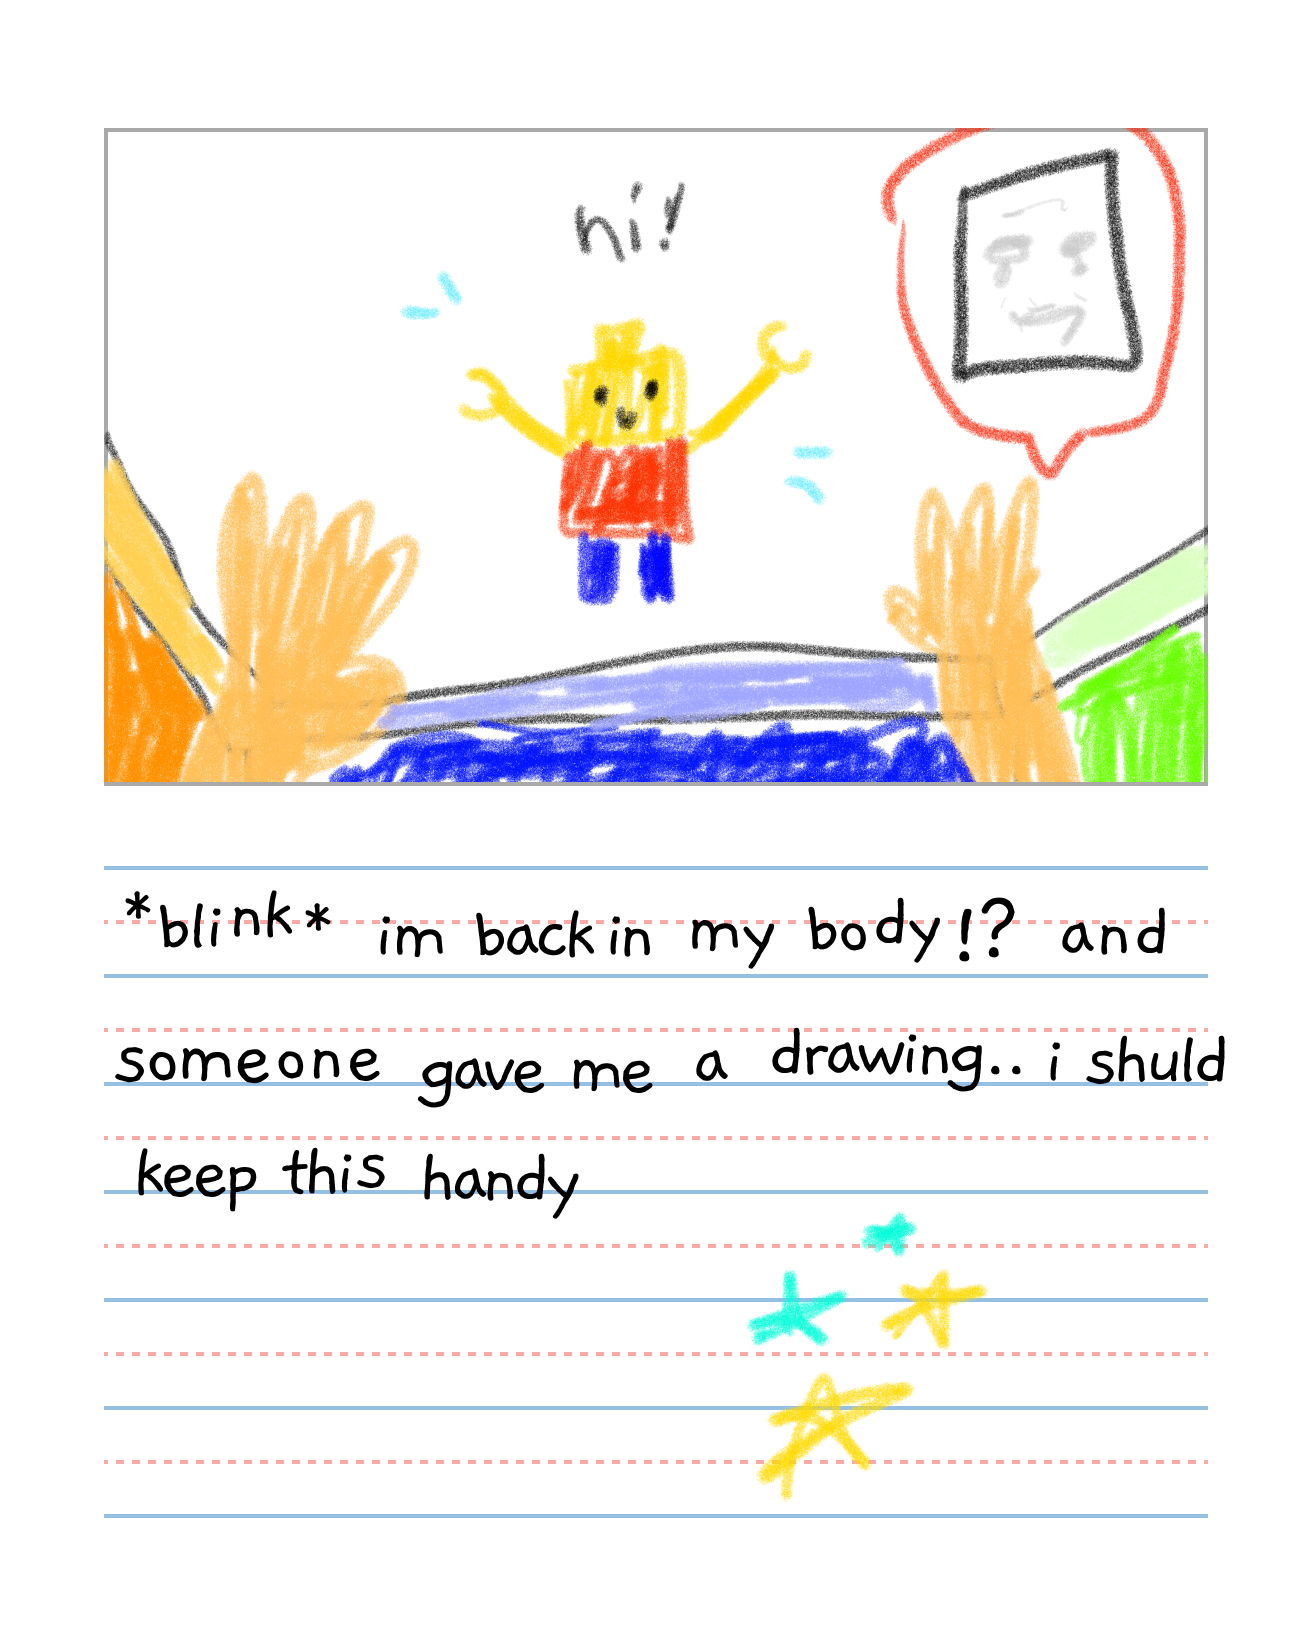 hi!
*blink* im back in my body!? and
someone gave me a drawing.. i shuld
keep this handy